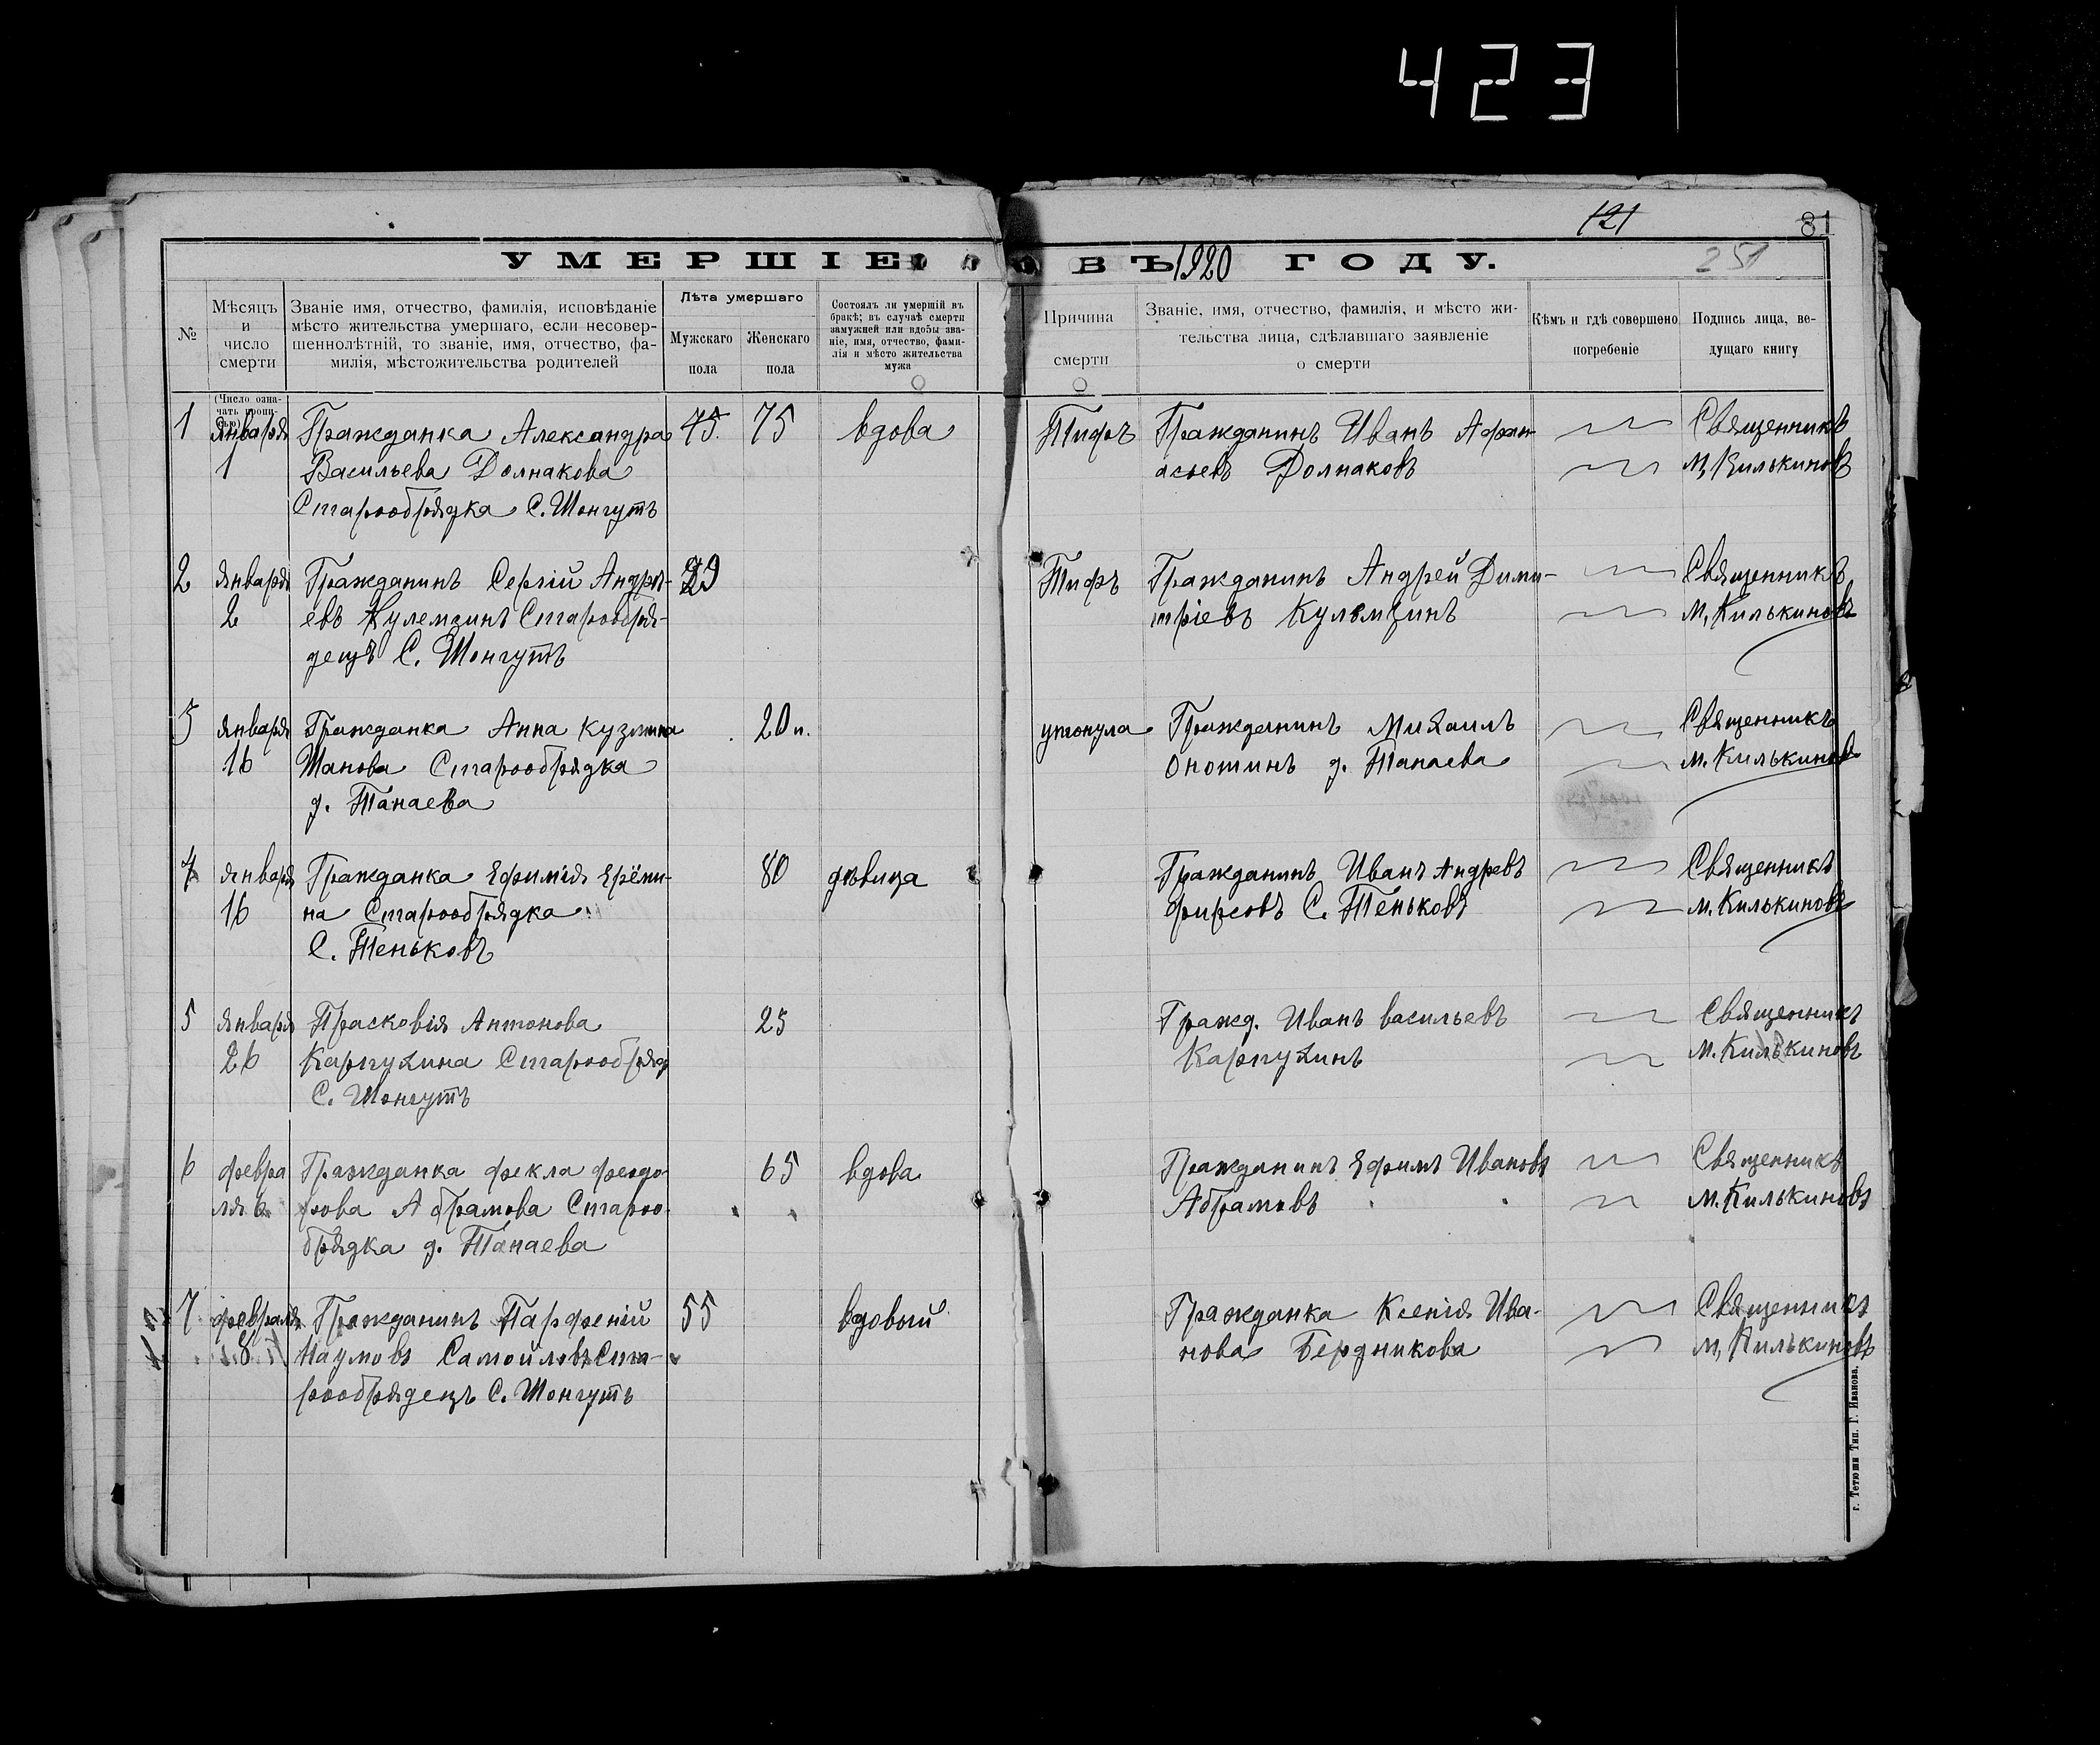 423
121
81
251
УМЕРШІЕ ВЪ 1920 ГОДУ.
№
Мѣсяцъ и число смерти
Званіе имя, отчество, фамилія, исповѣданіе
мѣсто жительства умершаго, если несовер-
шеннолѣтній, то званіе, имя, отчество, фа-
милія, мѣстожительства родителей
Лѣта умершаго
Мужскаго пола
Женскаго пола
Состоялъ ли умершій въ
бракѣ; въ случаѣ смерти
замужней или вдовы зва-
ніе, имя, отчество, фами-
лія и мѣсто жительства
мужа
Причина смерти
Званіе, имя, отчество, фамилія, и мѣсто жи-
тельства лица, сдѣлавшаго заявленіе
о смерти
Кѣмъ и гдѣ совершено
погребеніе
Подпись лица, ве-
дущаго книгу
(Число озна-
чать пропи-
1 января Гражданка Александра 75 75 вдова Тифъ Гражданинъ Иванъ Афан Священникъ
1 Васильева Долнакова асьевъ Долнаковъ М. Килькиновъ
Старообрядка С. Шонгутъ
2 января Гражданинъ Сергій Андре- 23 Тифъ Гражданинъ Андрей Дими- Священникъ
2 евъ Кулемзинъ Старообря- тріевъ Кулемзинъ М. Килькиновъ
децъ С. Шонгутъ
3 января Гражданка Анна Кузмина 20 утонула Гражданинъ Михаилъ Священникъ
16 Шанова Старообрядка Оношинъ д. Танаева М. Килькиновъ
д. Танаева
4 января Гражданка Ефимія Ерёми- 80 дѣвица Гражданинъ Иванъ Андревъ Священникъ
16 на Старообрядка Фирсовъ С. Теньковъ М. Килькиновъ
С. Теньковъ
5 января Прасковія Антонова 25 Гражд. Иванъ Васильевъ Священникъ
26 Карпухина Старообряд Карпухинъ М. Килькиновъ
С. Шонгутъ
6 февра Гражданка Фекла Феодо- 65 вдова Гражданинъ Ефимъ Ивановъ Священникъ
ля 6 рова Абрамова Староо- Абрамовъ М. Килькиновъ
брядка д. Танаева
7 февраля Гражданинъ Парфеній 55 вдовый Гражданка Ксенія Ива- Священникъ
8 Наумовъ Самойловъ Ста- нова Бердникова М. Килькиновъ
рообрядецъ С. Шонгутъ
г. Тетюши Тип. Г. Иванова.